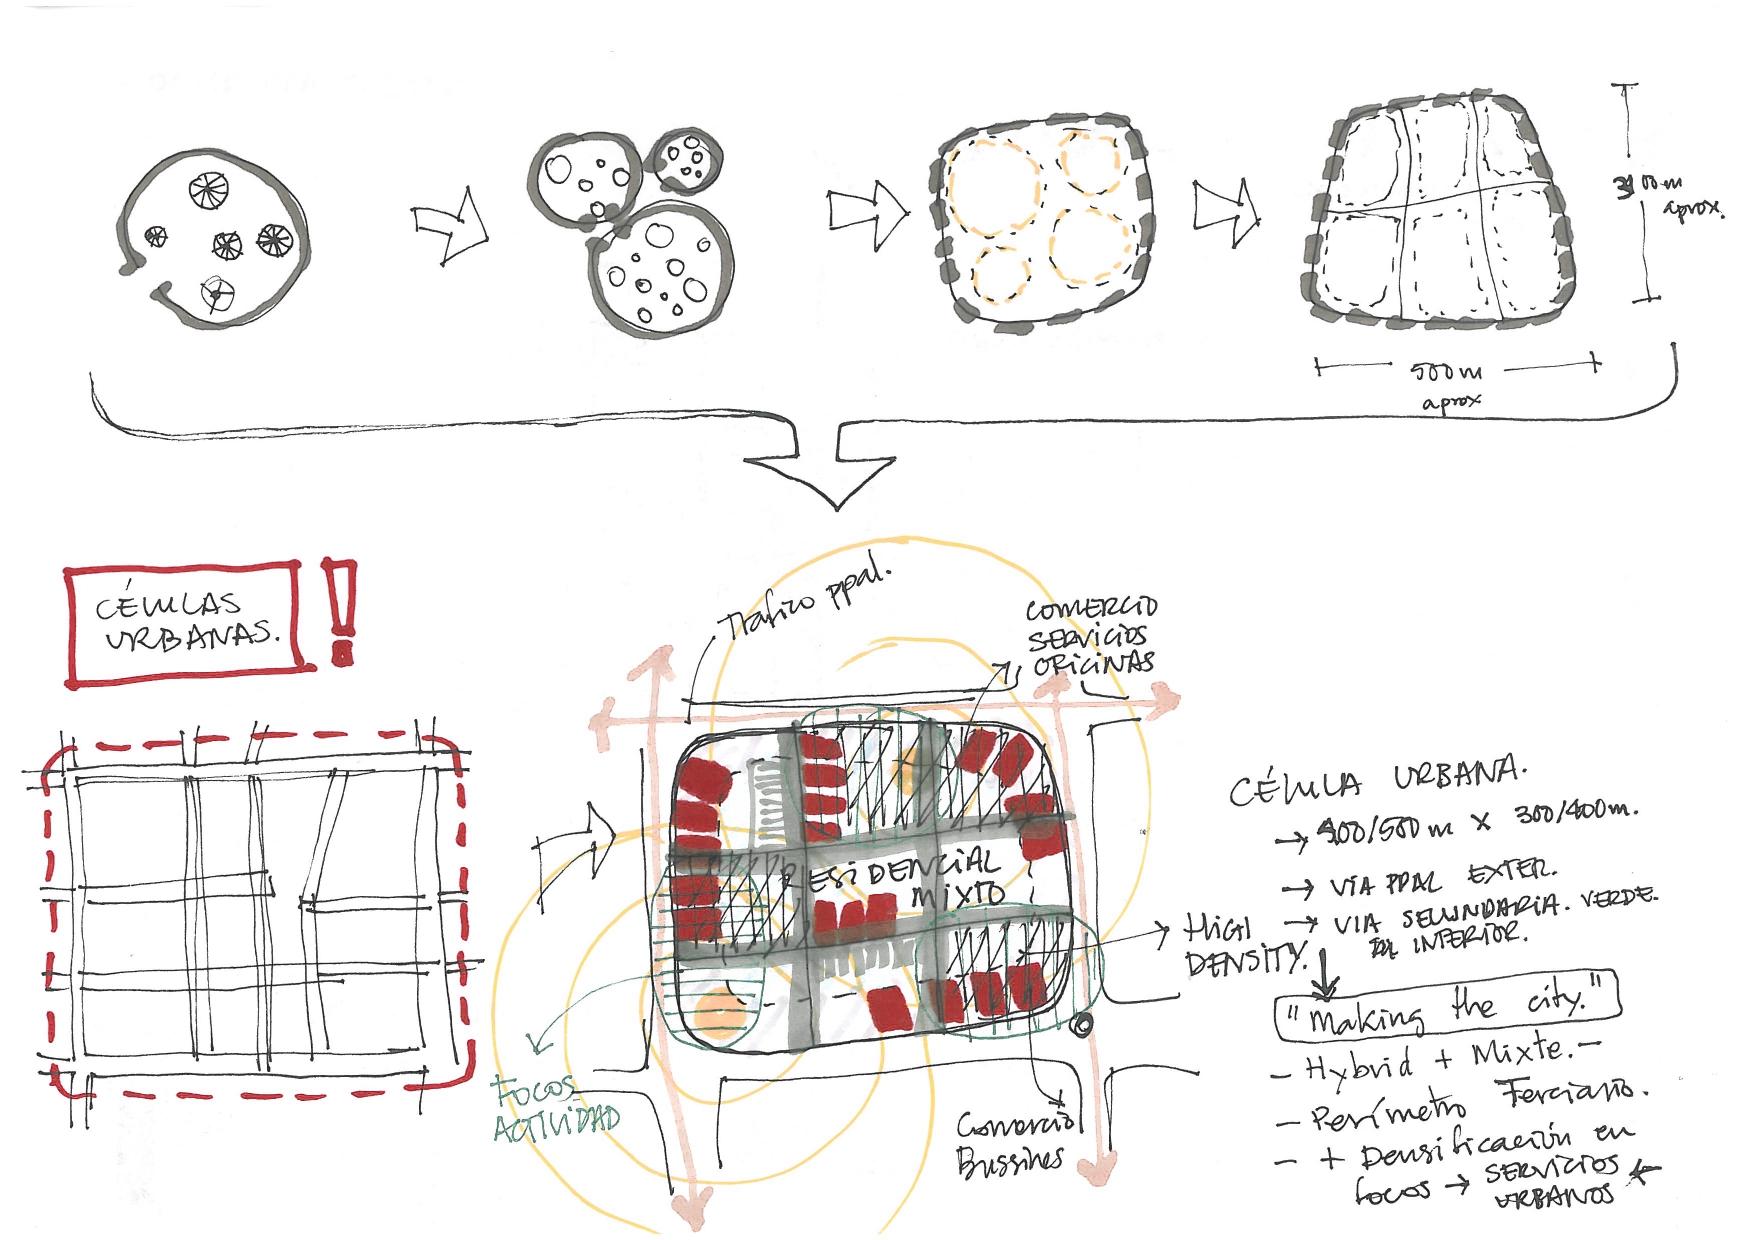 aprox.
500m
aprox
CÉLULAS
URBANAS.
!
Trafico ppal.
COMERCIO
SERVICIOS
OFICINAS
RESIDENCIAL
MIXTO
HIGH
DENSITY.
FOCOS
ACTIVIDAD
Comercio
Bussines
CÉLULA URBANA.
→ 400/500 m x 300/400m.
→ VIA PPAL EXTER.
→ VIA SECUNDARIA. VERDE.
INTERIOR.
"Making the city."
- Hybrid + Mixte. -
- Perímetro Terciario.
- + Densificación en
focos → SERVICIOS
URBANOS